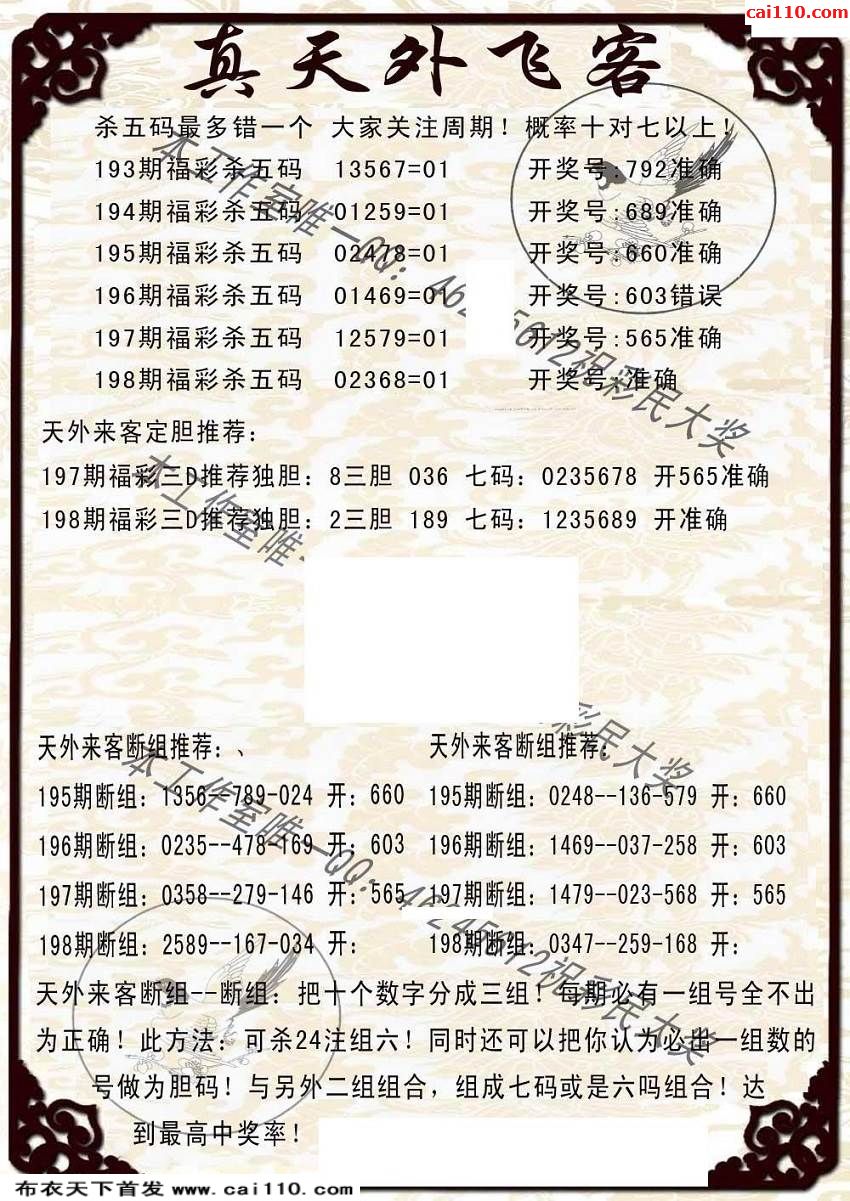 cai110.com
真天外飞客
杀五码最多错一个 大家关注周期！概率十对七以上！
193期福彩杀五码 13567=01 开奖号:792准确
194期福彩杀五码 01259=01 开奖号:689准确
195期福彩杀五码 02478=01 开奖号:660准确
196期福彩杀五码 01469=01 开奖号:603错误
197期福彩杀五码 12579=01 开奖号:565准确
198期福彩杀五码 02368=01 开奖号:准确
本工作室唯一QQ：祝彩民大奖
天外来客定胆推荐：
197期福彩三D推荐独胆：8三胆 036 七码：0235678 开565准确
198期福彩三D推荐独胆：2三胆 189 七码：1235689 开准确
本工作室唯
彩民大奖
天外来客断组推荐：、 天外来客断组推荐：
195期断组：1356--789-024 开：660 195期断组：0248--136-579 开：660
196期断组：0235--478-169 开：603 196期断组：1469--037-258 开：603
197期断组：0358--279-146 开：565 197期断组：1479--023-568 开：565
198期断组：2589--167-034 开： 198期断组：0347--259-168 开：
本工作室唯一QQ：46245612祝彩民大奖
天外来客断组--断组：把十个数字分成三组！每期必有一组号全不出
为正确！此方法：可杀24注组六！同时还可以把你认为必出一组数的
号做为胆码！与另外二组组合，组成七码或是六吗组合！达
到最高中奖率！
布衣天下首发 www.cai110.com